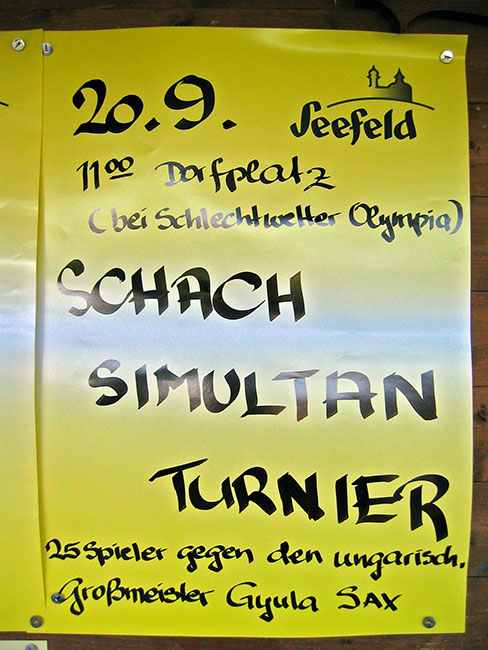 20.9.
Seefeld
11⁰⁰ Dorfplatz
(bei Schlechtwetter Olympia)
SCHACH
SIMULTAN
TURNIER
25 Spieler gegen den ungarisch.
Großmeister Gyula SAX